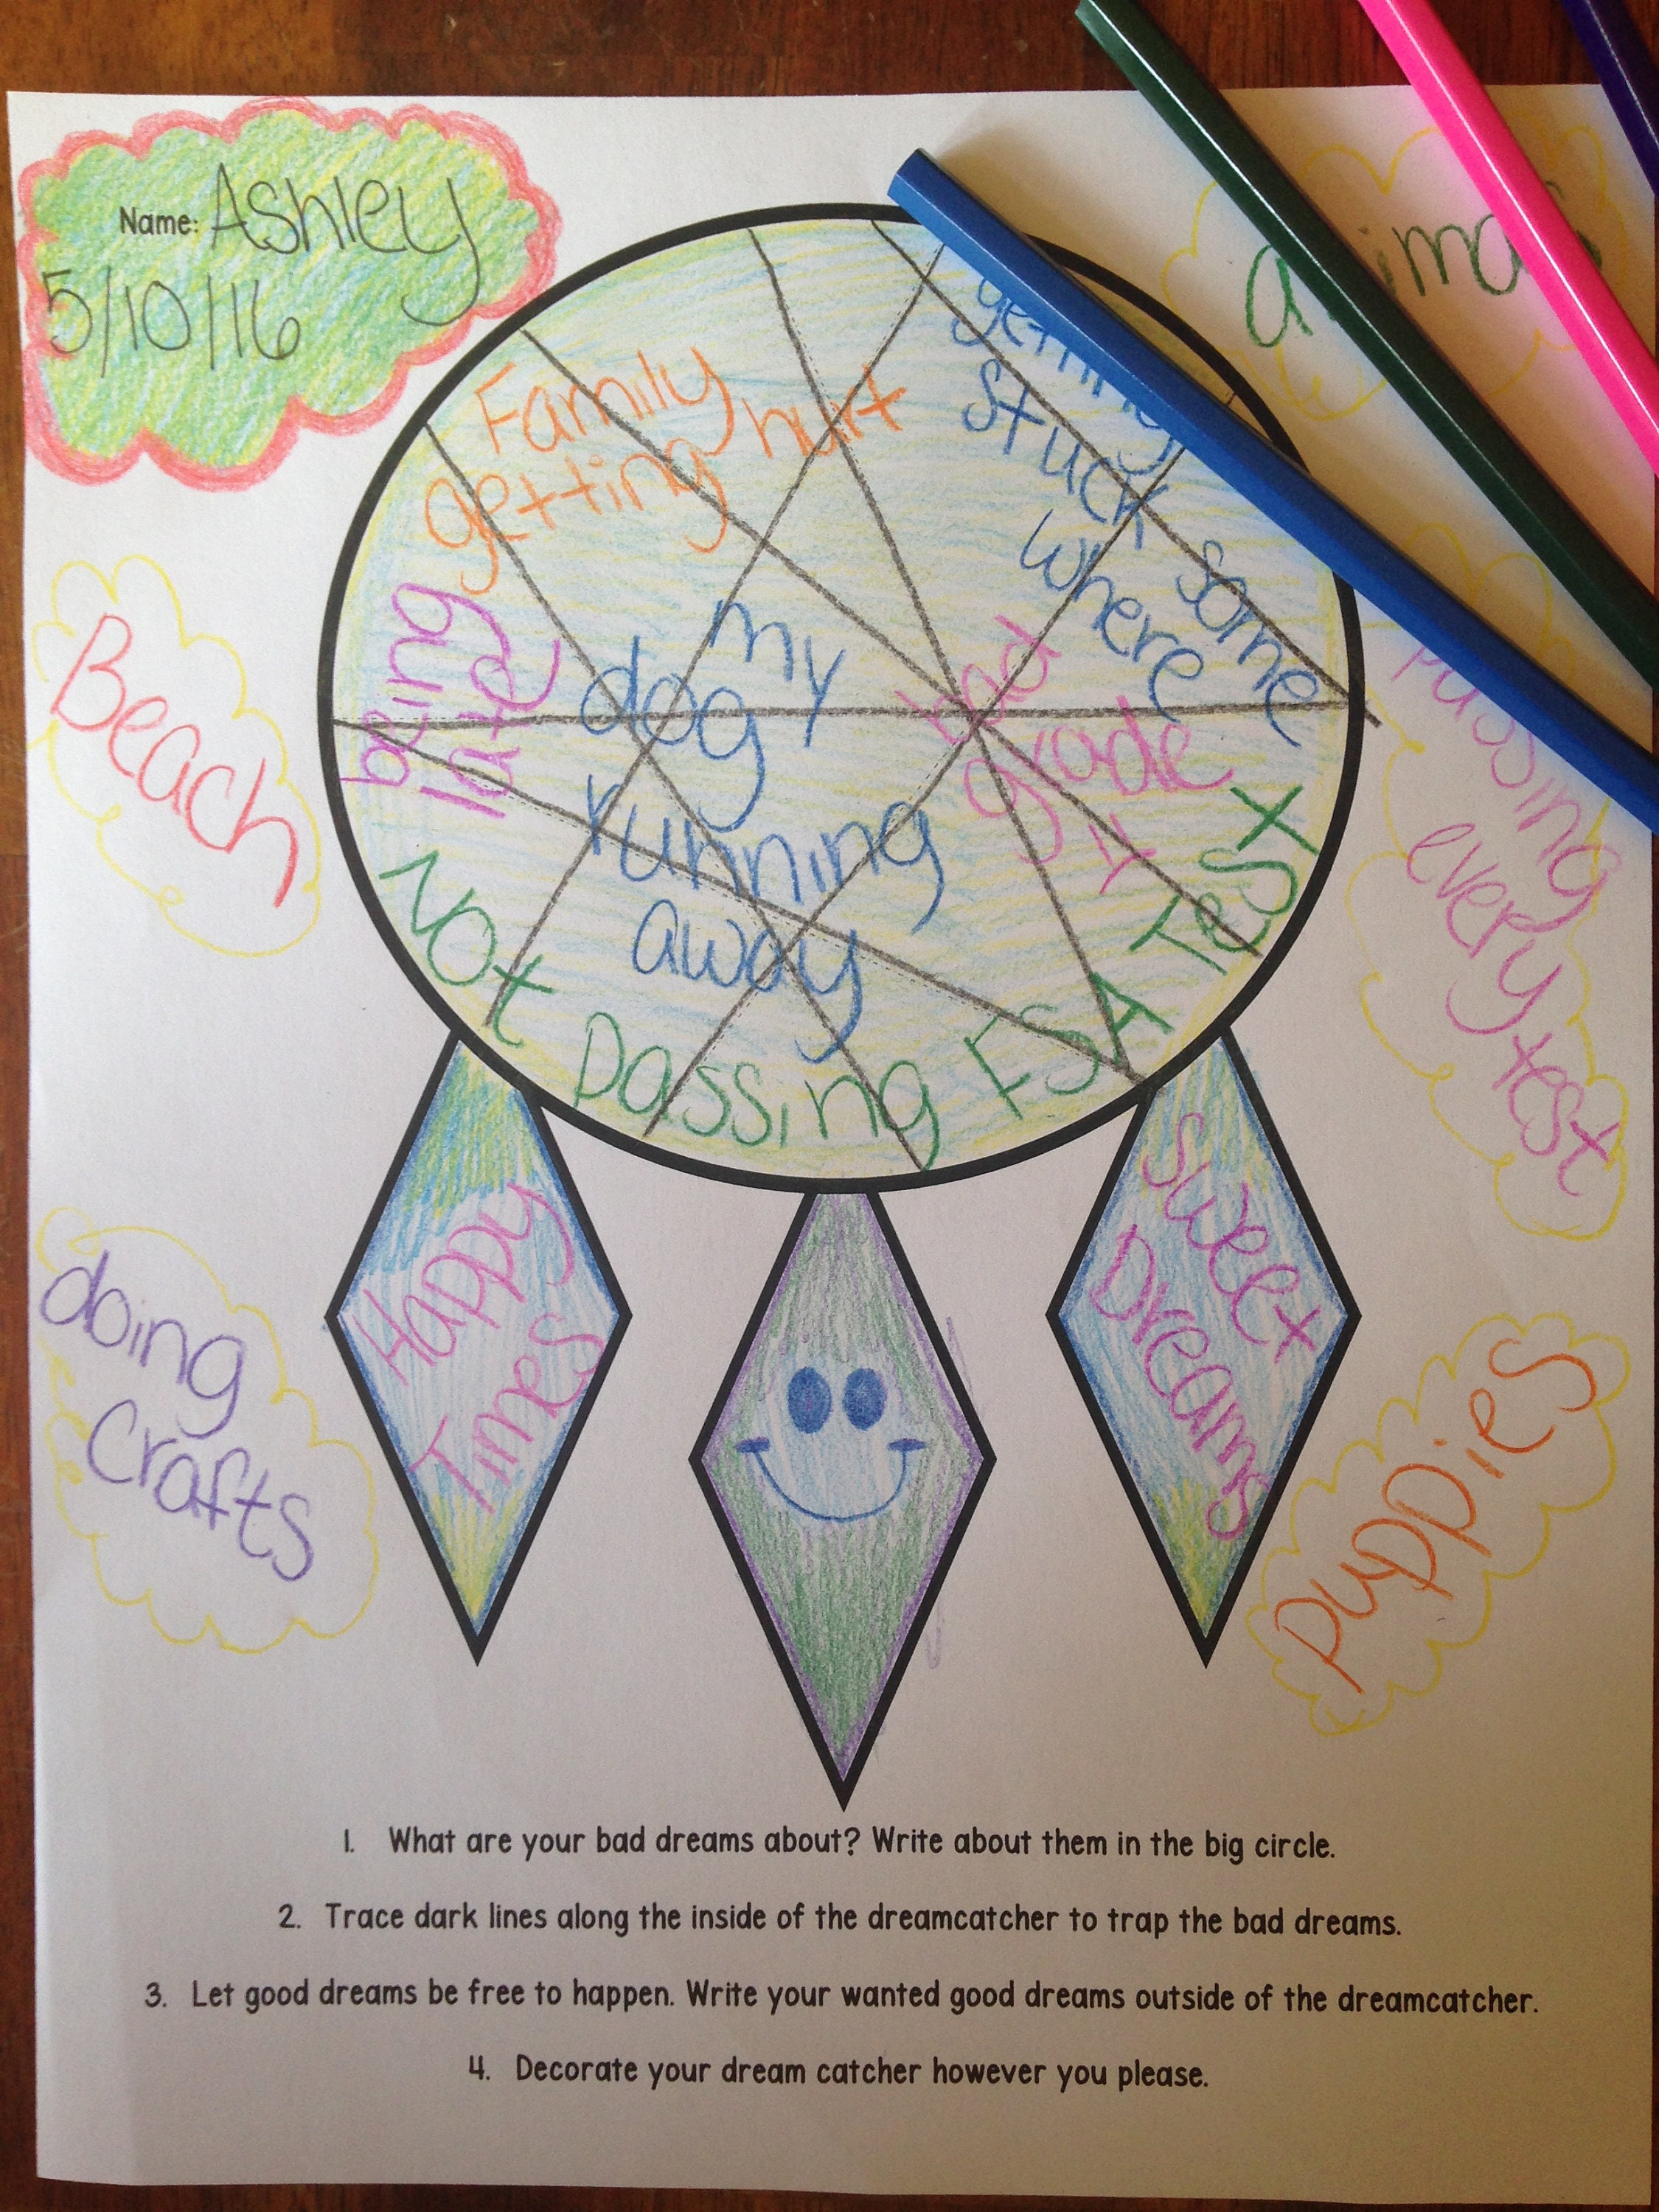 Name: Ashley
5/10/16
Family
getting hurt
getting
stuck
some
where
being
late
my
dog
running
away
bad
grade
Not passing FSA Test
Beach
passing
every
test
doing
crafts
Happy
Times
Sweet
Dreams
puppies
1. What are your bad dreams about? Write about them in the big circle.
2. Trace dark lines along the inside of the dreamcatcher to trap the bad dreams.
3. Let good dreams be free to happen. Write your wanted good dreams outside of the dreamcatcher.
4. Decorate your dream catcher however you please.